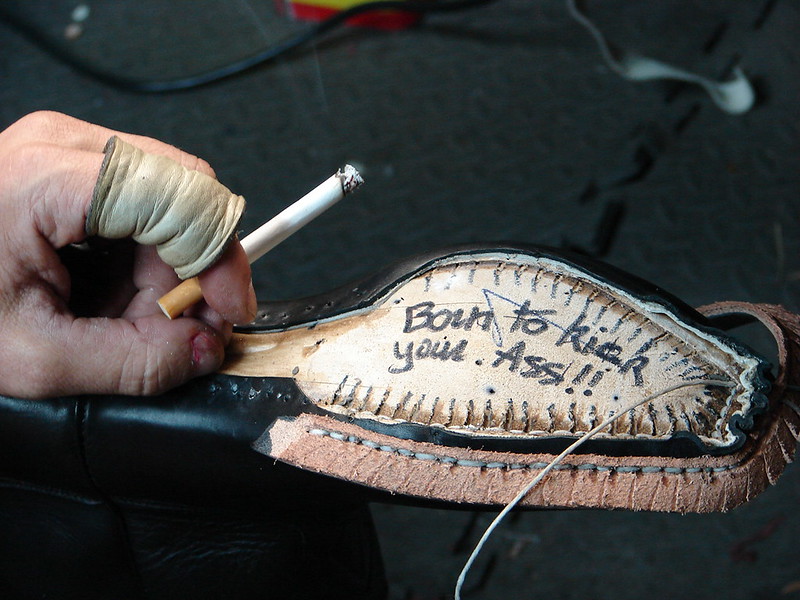 Born to kick
your . Ass!!